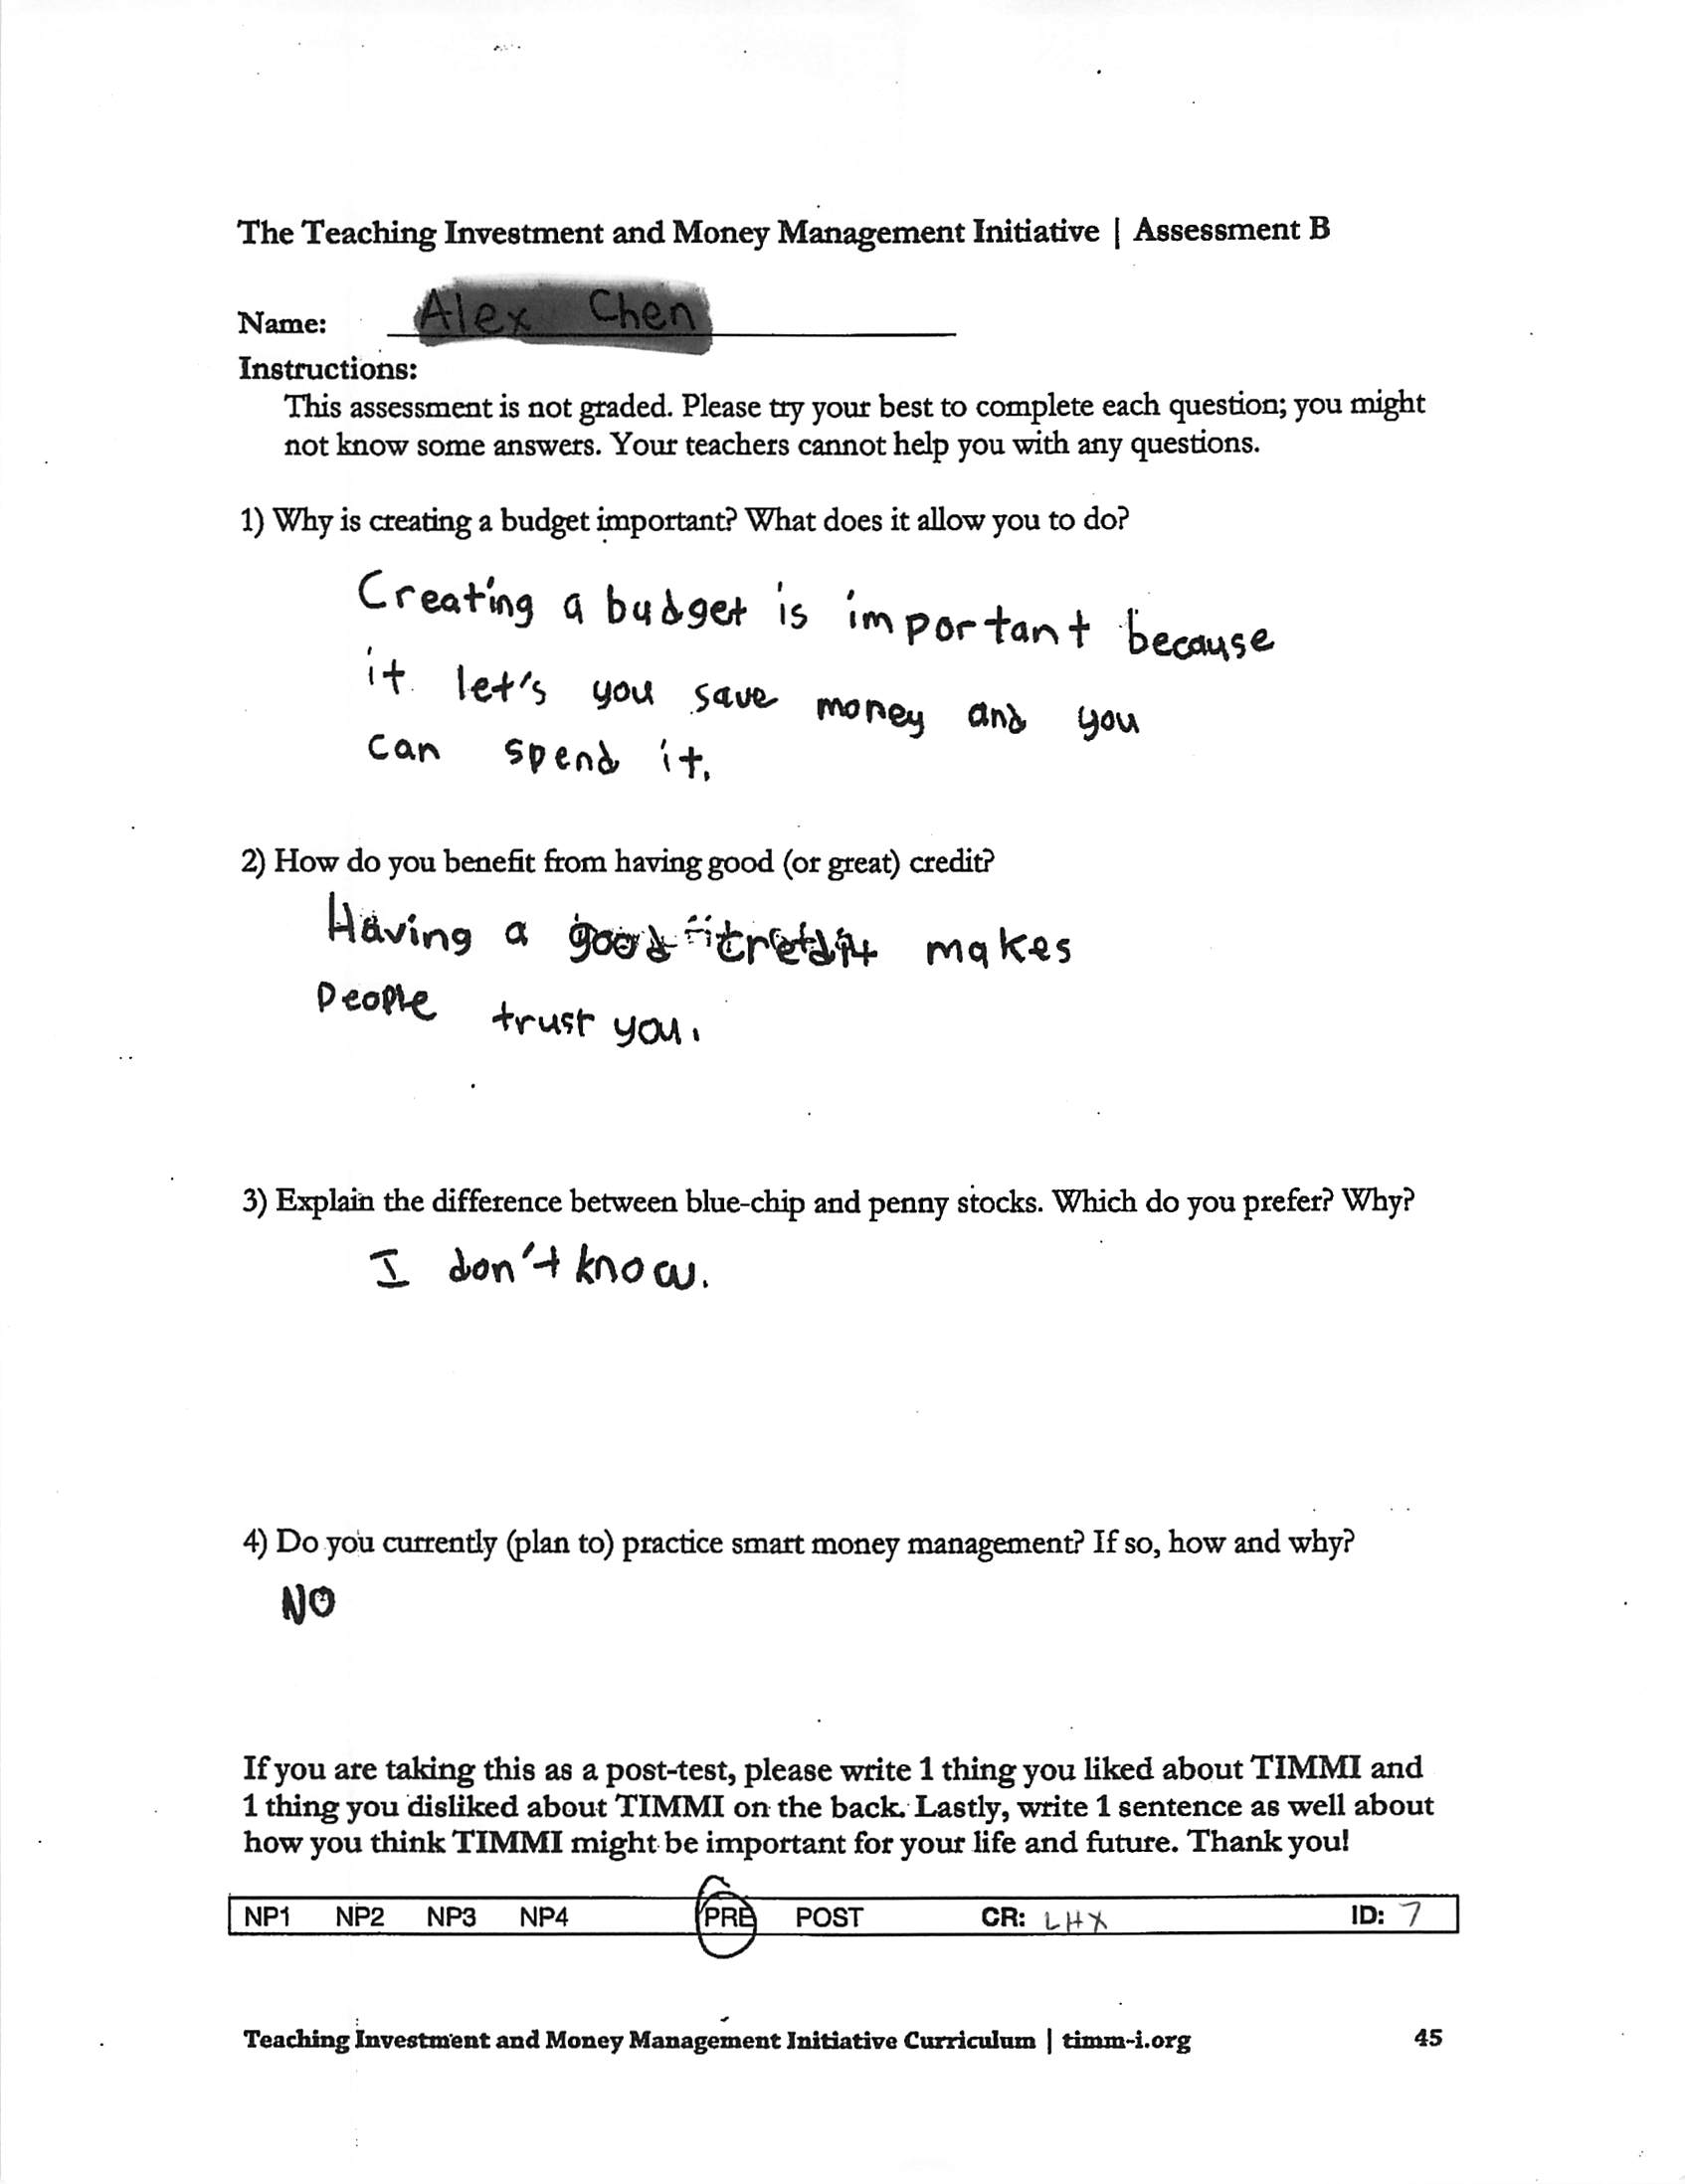 The Teaching Investment and Money Management Initiative | Assessment B
Name: Alex Chen
Instructions:
This assessment is not graded. Please try your best to complete each question; you might
not know some answers. Your teachers cannot help you with any questions.
1) Why is creating a budget important? What does it allow you to do?
Creating a budget is important because
it let's you save money and you
can spend it.
2) How do you benefit from having good (or great) credit?
Having a good credit makes
people trust you.
3) Explain the difference between blue-chip and penny stocks. Which do you prefer? Why?
I don't know.
4) Do you currently (plan to) practice smart money management? If so, how and why?
NO
If you are taking this as a post-test, please write 1 thing you liked about TIMMI and
1 thing you disliked about TIMMI on the back. Lastly, write 1 sentence as well about
how you think TIMMI might be important for your life and future. Thank you!
NP1 NP2 NP3 NP4 PRE POST CR: LHX ID: 7
Teaching Investment and Money Management Initiative Curriculum | timm-i.org 45